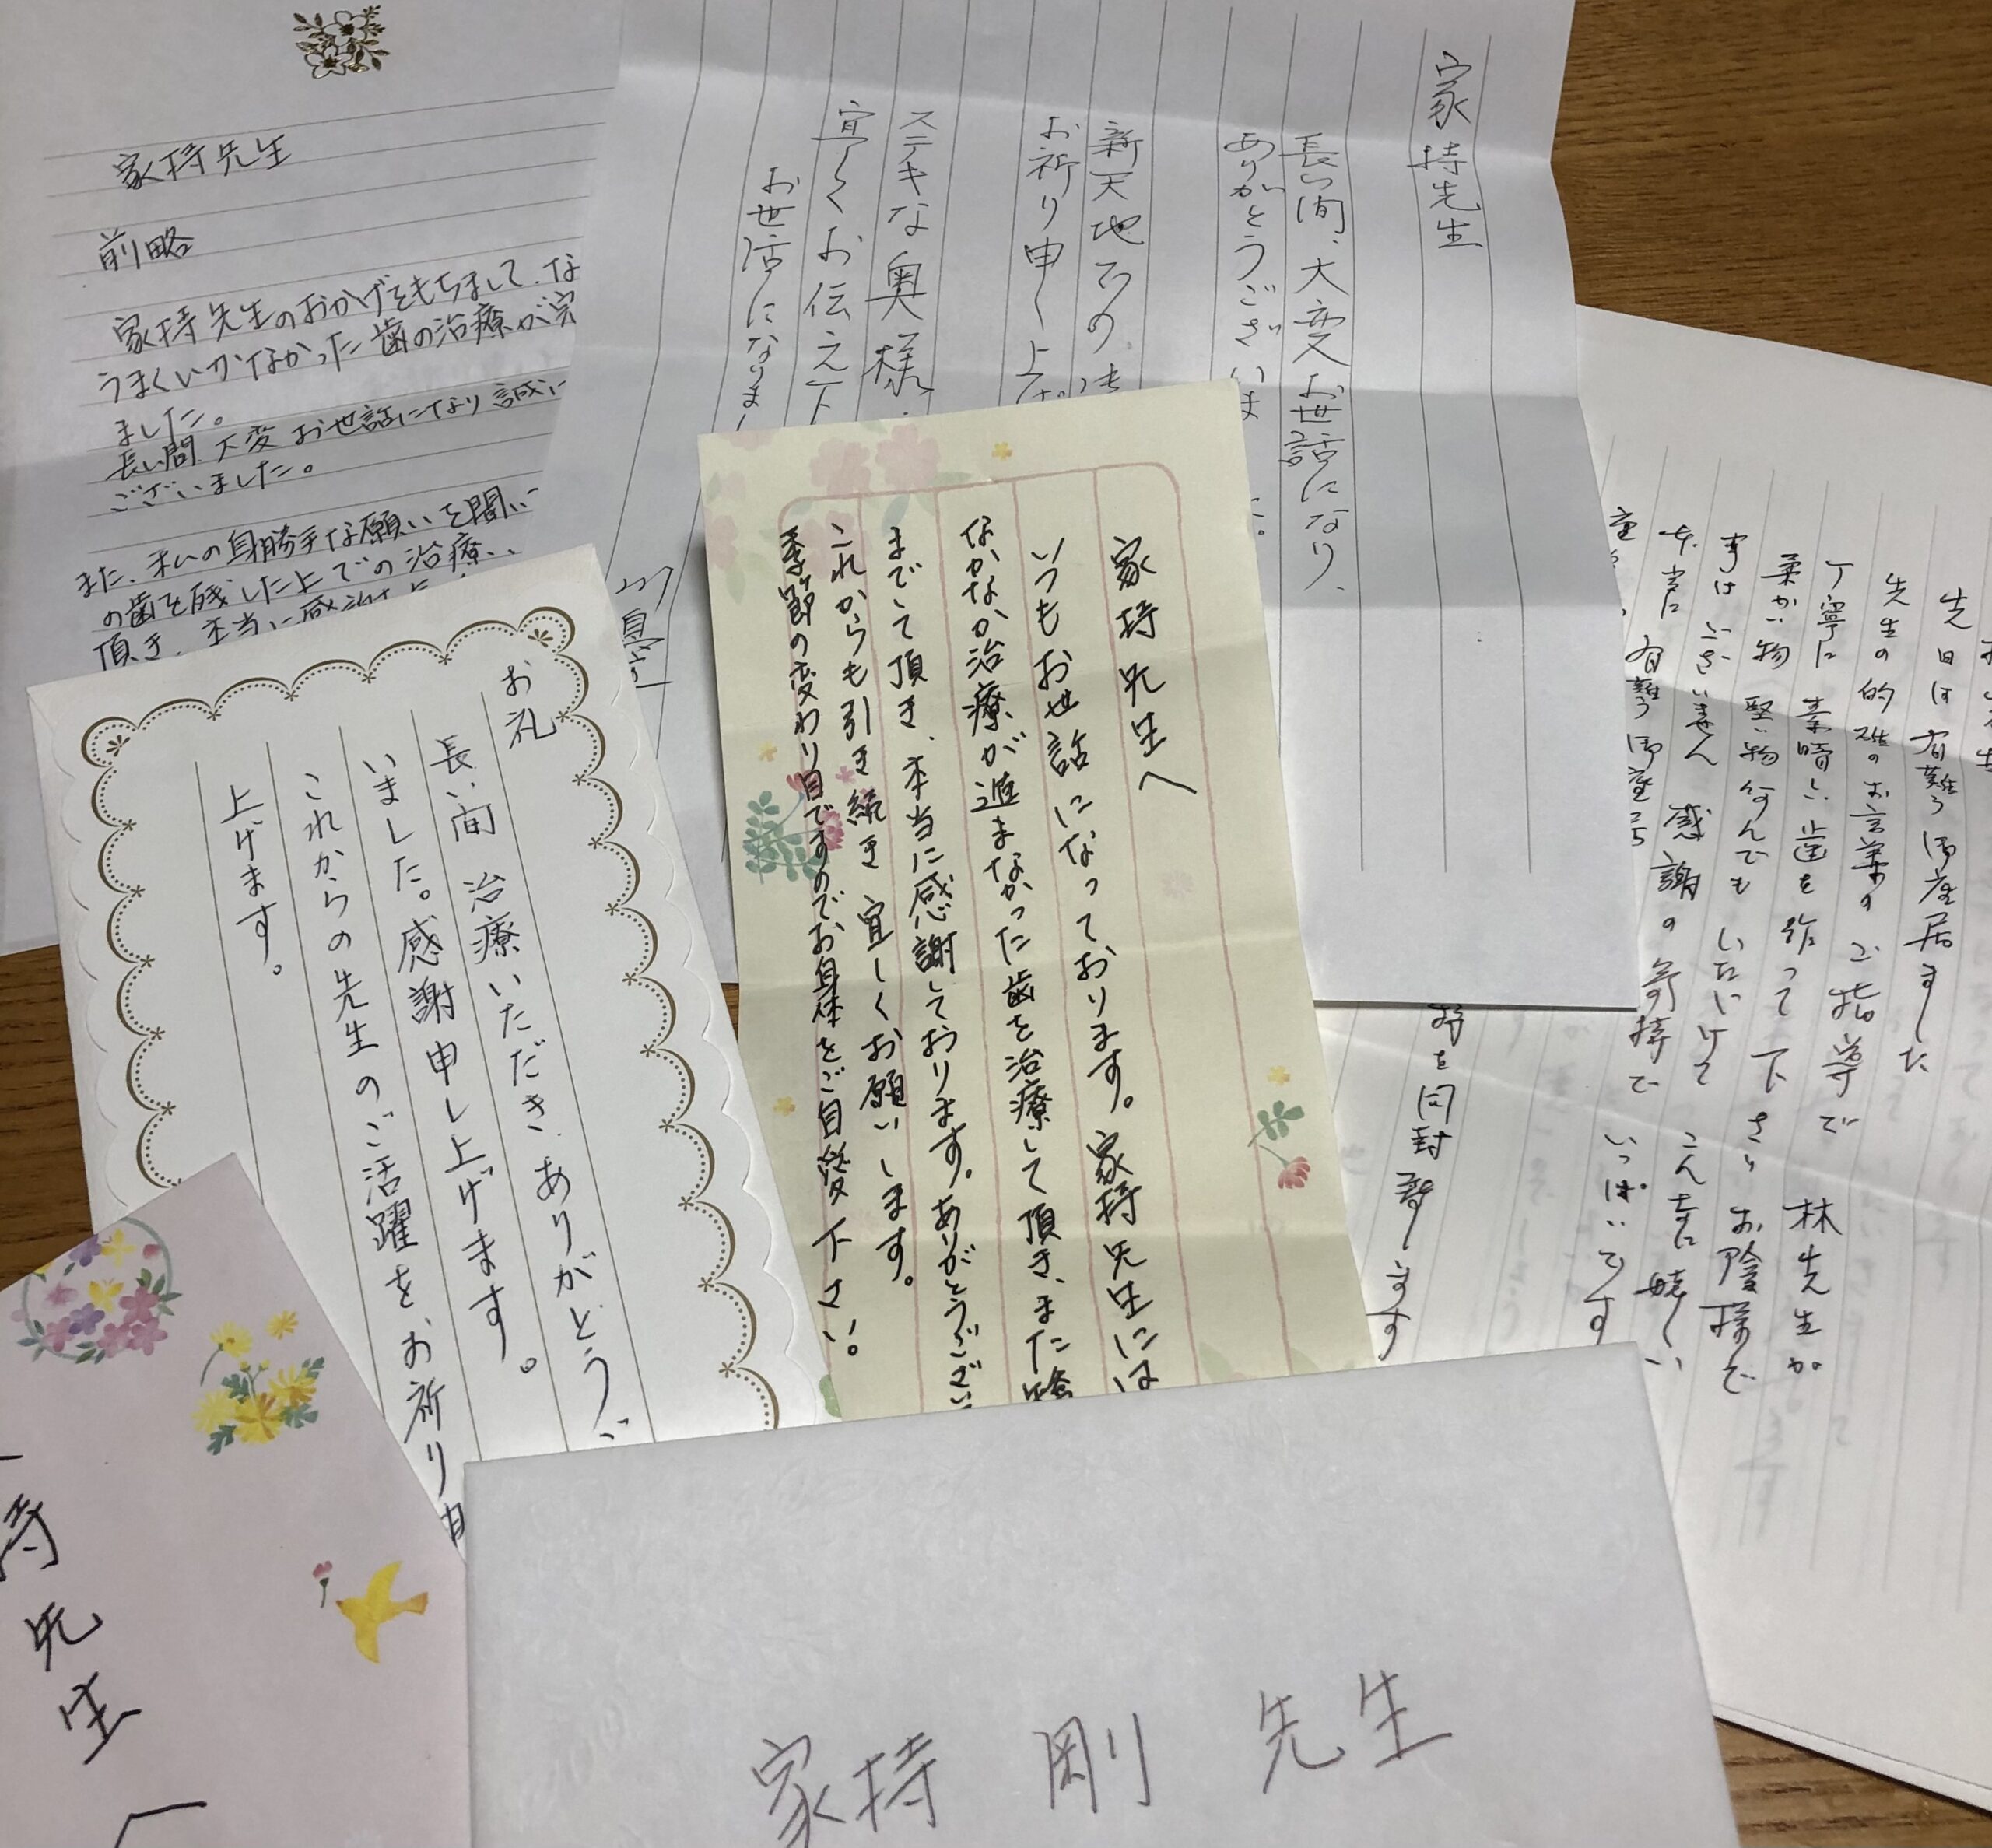 家持先生
前略
家持先生のおかげをもちまして、な
うまくいかなかった歯の治療が完
ました。
長い間 大変 お世話になり 誠に
ございました。
また、私の身勝手な願いを聞い
の歯を残した上での治療
頂き、本当に感謝
家持先生
長い間、大変お世話になり、
ありがとうございま
新天地での
お祈り申し上げ
ステキな奥様
宜しくお伝え下
お世話になりまし
先日は有難う御座居ました
先生の的確のお言葉のご指導で
丁寧に素晴しい歯を作って下さり
林先生が
柔かい物堅い物何んでもいただけて
お陰様で
事はございません
こんなに嬉しい
本当に有難う御座
感謝の気持で
いっぱいです
を同封致します
家持先生へ
いつもお世話になっております。家持先生には
なかなか治療が進まなかった歯を治療して頂き、また
までして頂き、本当に感謝しております。ありがとうござい
これからも引き続き宜しくお願いします。
季節の変わり目ですのでお身体をご自愛下さい。
お礼
長い間 治療いただき、ありがとうご
いました。感謝申し上げます。
これからの先生のご活躍をお祈り申
上げます。
持先生へ
家持 剛 先生